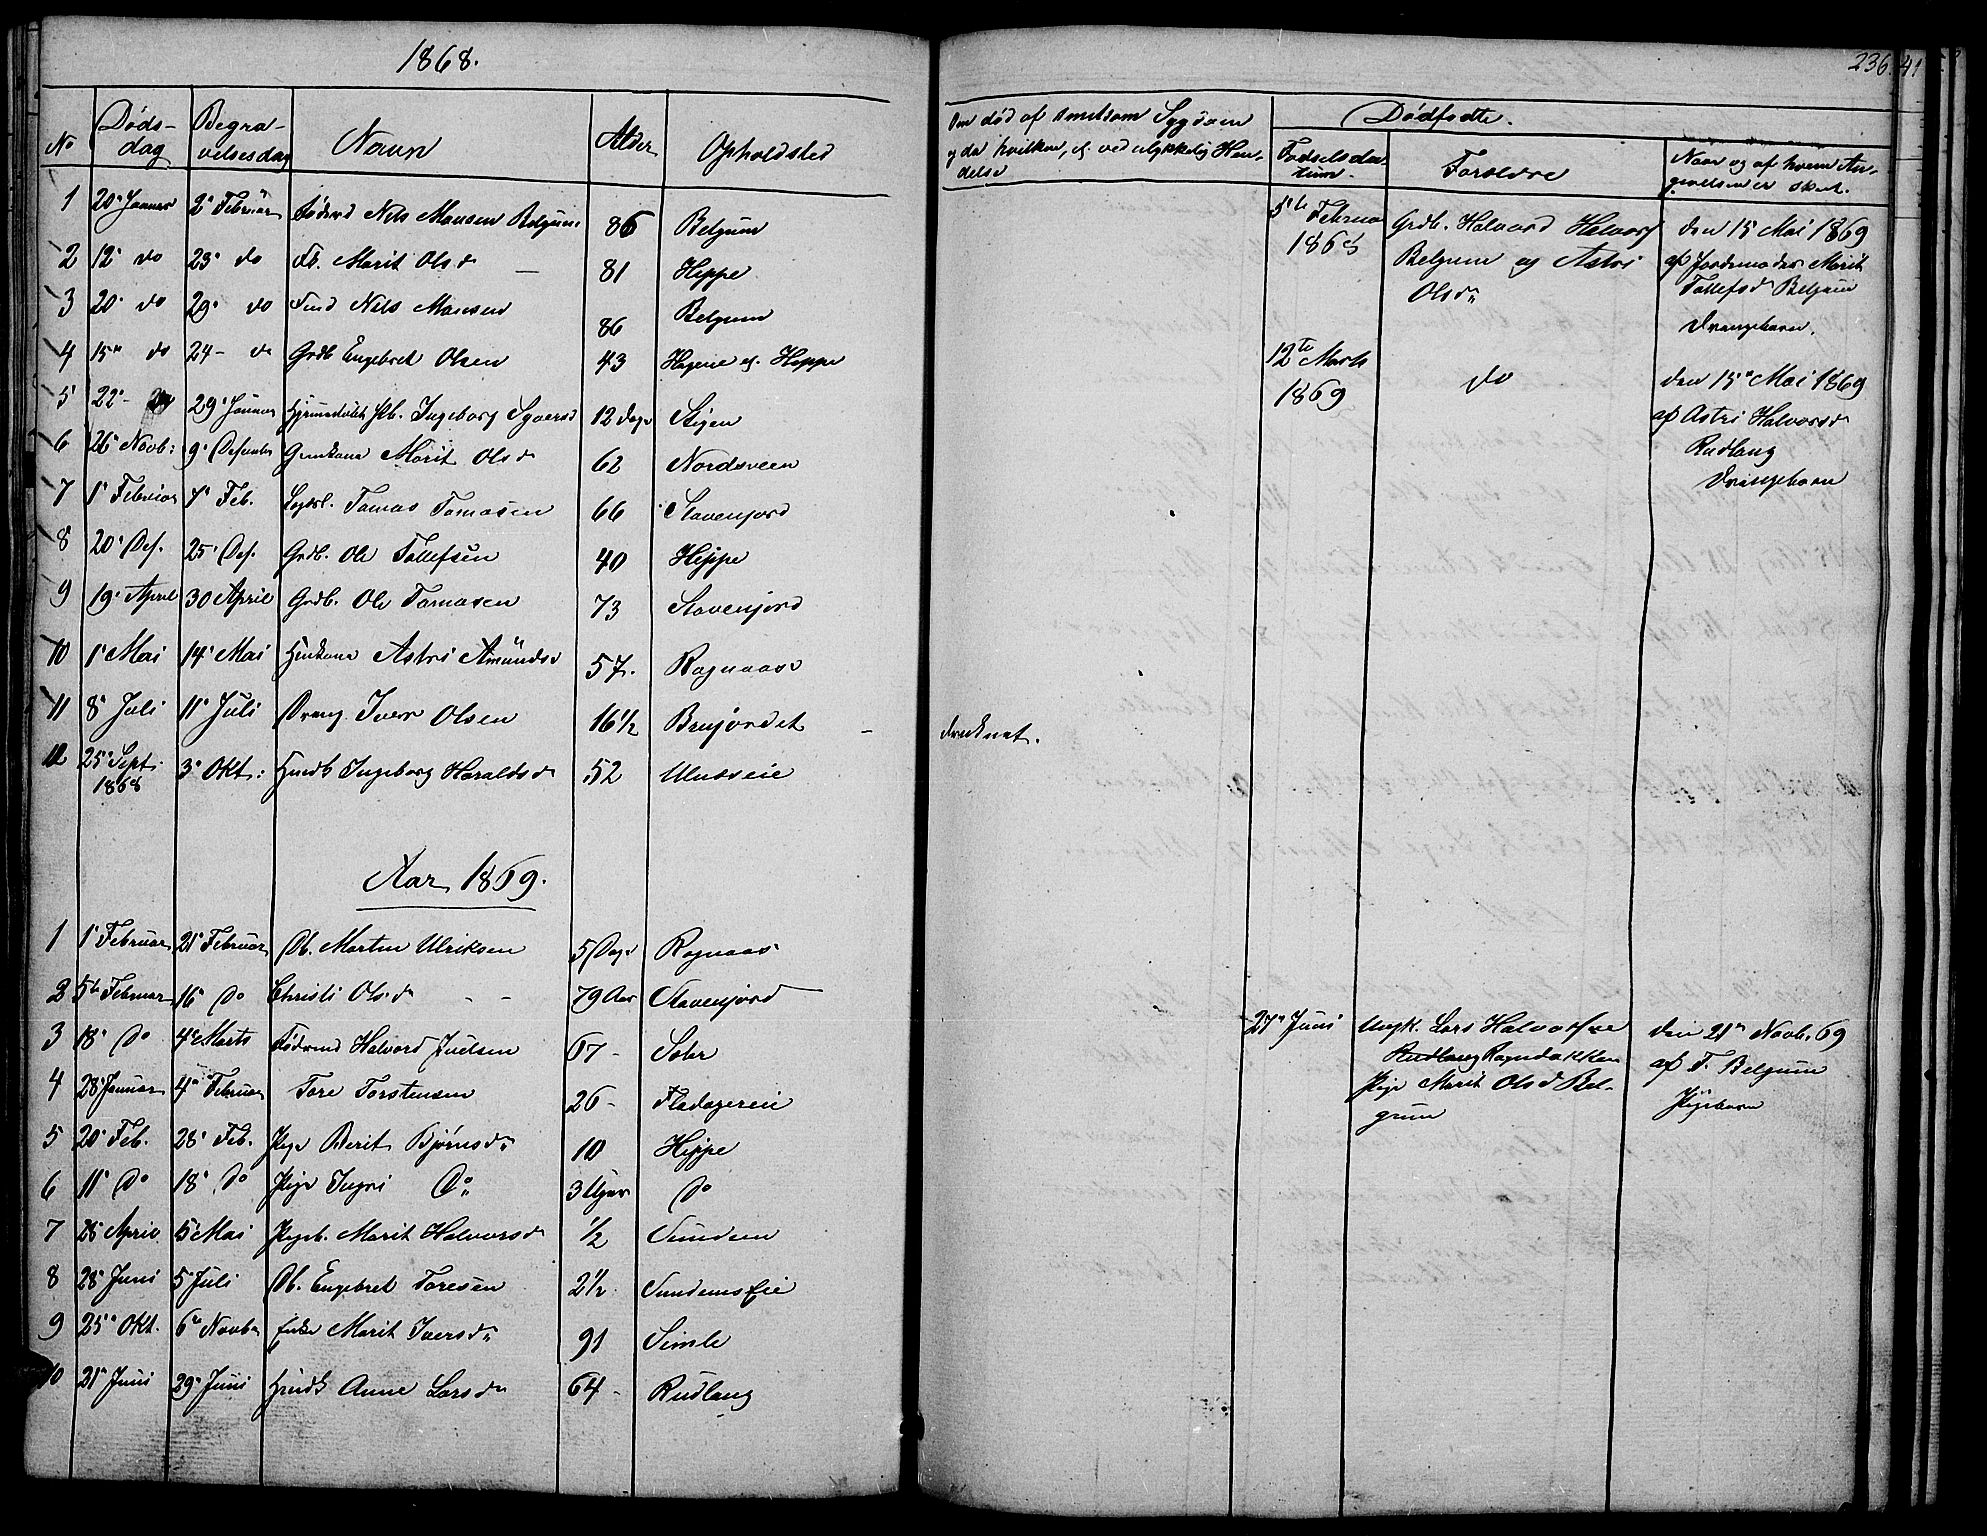 1868.
No Døds-dag Begra-velsesdag Navn Alder Opholdsted
1 20 Januar 2 Februar Fødrnd Nils Monsen Belgum 86 Belgum
2 12 do 23 do Fk. Marit Olsd — 81 Hippe
3 20 do 29 do Find Nils Monsen 86 Belgum
4 15 do 24 - do Grdb Engebret Olsen 43 Hagene af Hippe
5 22 - 29 Januar Pb. Ingeborg Syversd 12 Dage Stigen
6 26 Novb: 9 Desember Grmkone Marit Olsd 62 Nordsveen
7 1 Februar 7 Feb. Lægdsl. Tomas Tomasen 66 Stavenjord
8 20 Des. 25 Des. Grdb. Ole Tollefsen 40 Hippe
9 19 April 30 April Grdb. Ole Tomasen 73 Stavenjord
10 1 Mai 14 Mai Hmkone Astri Amundsd 57. Rognaas
11 8 Juli 11 Juli Dreng Iver Olsen 16 1/2 Brujordet –
12 25 Sept. 1868 3 Okt: Ingeborg Haraldsd 52 Ulnæseie
Aar 1869.
1 1 Februar 21 Februar Db. Martin Ulriksen 5 Dage Rognaas
2 5te Februar 16 Do Christi Olsd - - 79 Aar Stavenjord
3 18 Do 4 Marts Fødrnd Halvord Juelsen 67 - Sohr
4 28 Januar 4 Februar Tore Torstensen 26 - Fladagereie
5 20 Feb. 28 Feb. Pige Berit Bjørnsd 10 Hippe
6 11 Do 18 Do Pige Ingri Do 3 Uger Do
7 28 April 5 Mai Pigeb. Marit Halvorsd 1/2 Sundem
8 28 Juni 5 Juli Db. Engebret Toresen 2 1/2 Sundemseie
9 25 Okt. 6 Novb Enke Marit Iversd 91 Simle
10 21 Juni 29 Juni Anne Larsd 64 - Rudlang
236. 41
Om død af smitsom Sygdom
og da hvilken, el. ved ulykkelig Hæn-
delse
Dødfødte.
Fødselsda-tum. Forældre Naar og af hvem An-givelsen er skeet.
5te Februar 1868
Grdb. Halvord Halvors
Belgum og Astri
Olsd
den 15 Mai 1869
af Jordemoder Marit
Tollefsd Belgum
Drengebarn.
12te Marts 1869
do
den 15 Mai 1869
af Astri Halvorsd
Rudlang
Drengebarn
druknet.
27 Juni
Ungk. Lars Halvorsen
Rudlang Rogndokken
Pige Marit Olsd Bel-
gum
den 21 Novb. 69
af T. Belgum
Pigebarn